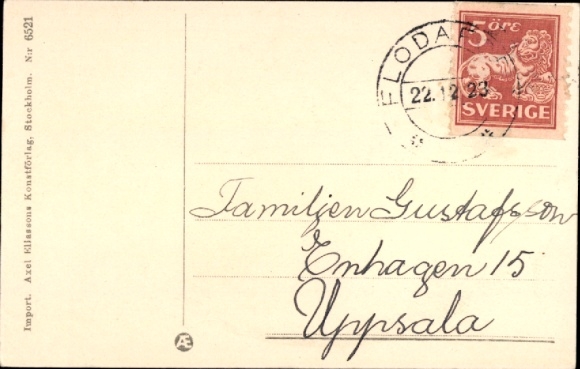 Import. Axel Eliassons Konstförlag, Stockholm. N:r 6521
Æ
5 ÖRE
SVERIGE
FLODA
22.12.23
Familjen Gustafsson
Enhagen 15
Uppsala